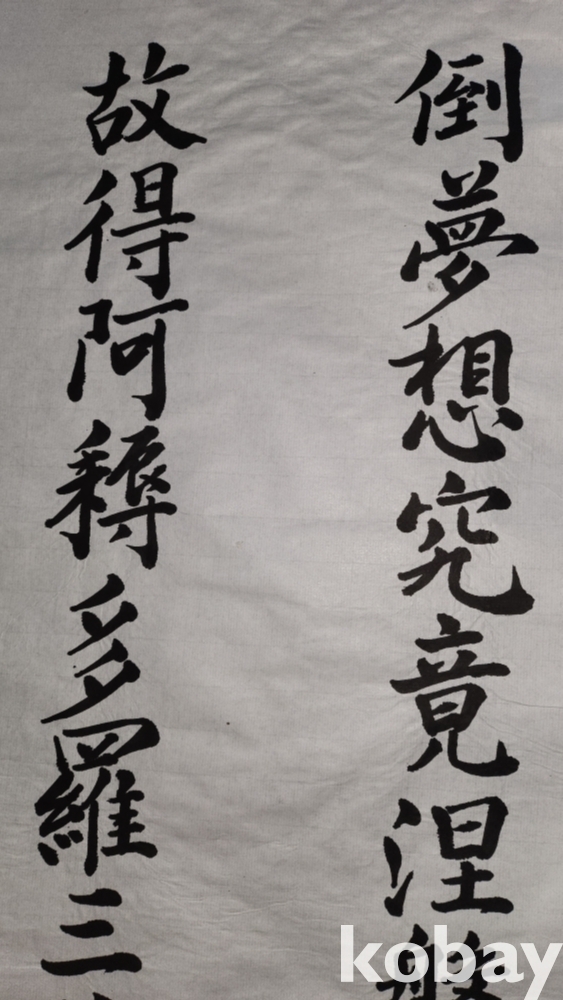 倒夢想究竟涅般
故得阿耨多羅三
kobay